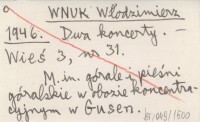 WNUK Włodzimierz
1946. Dwa koncerty. —
Wieś 3, nr 31.
M. in. górale i pieśni
góralskie w obozie koncentra-
cyjnym w Gusen.